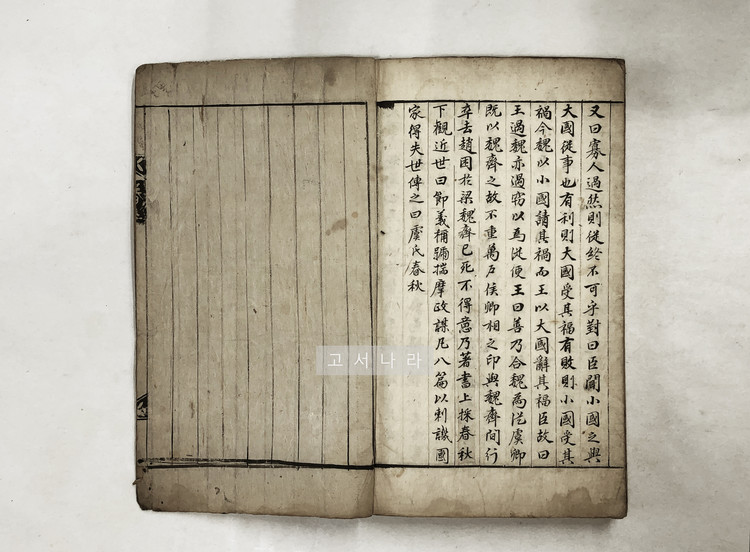 又曰寡人過然則從終不可乎對曰臣聞小國之與
大國從事也有利則大國受其福有敗則小國受其
禍今魏以小國請其禍而王以大國辭其福臣故曰
王過魏亦過窃以爲從便王曰善乃合魏爲從虞卿
既以魏齊之故不重萬戶侯卿相之印與魏齊間行
卒去趙困於梁魏齊已死不得意乃著書上採春秋
下觀近世曰節義稱號揣摩政謀凡八篇以刺譏國
家得失世傳之曰虞氏春秋
고서나라